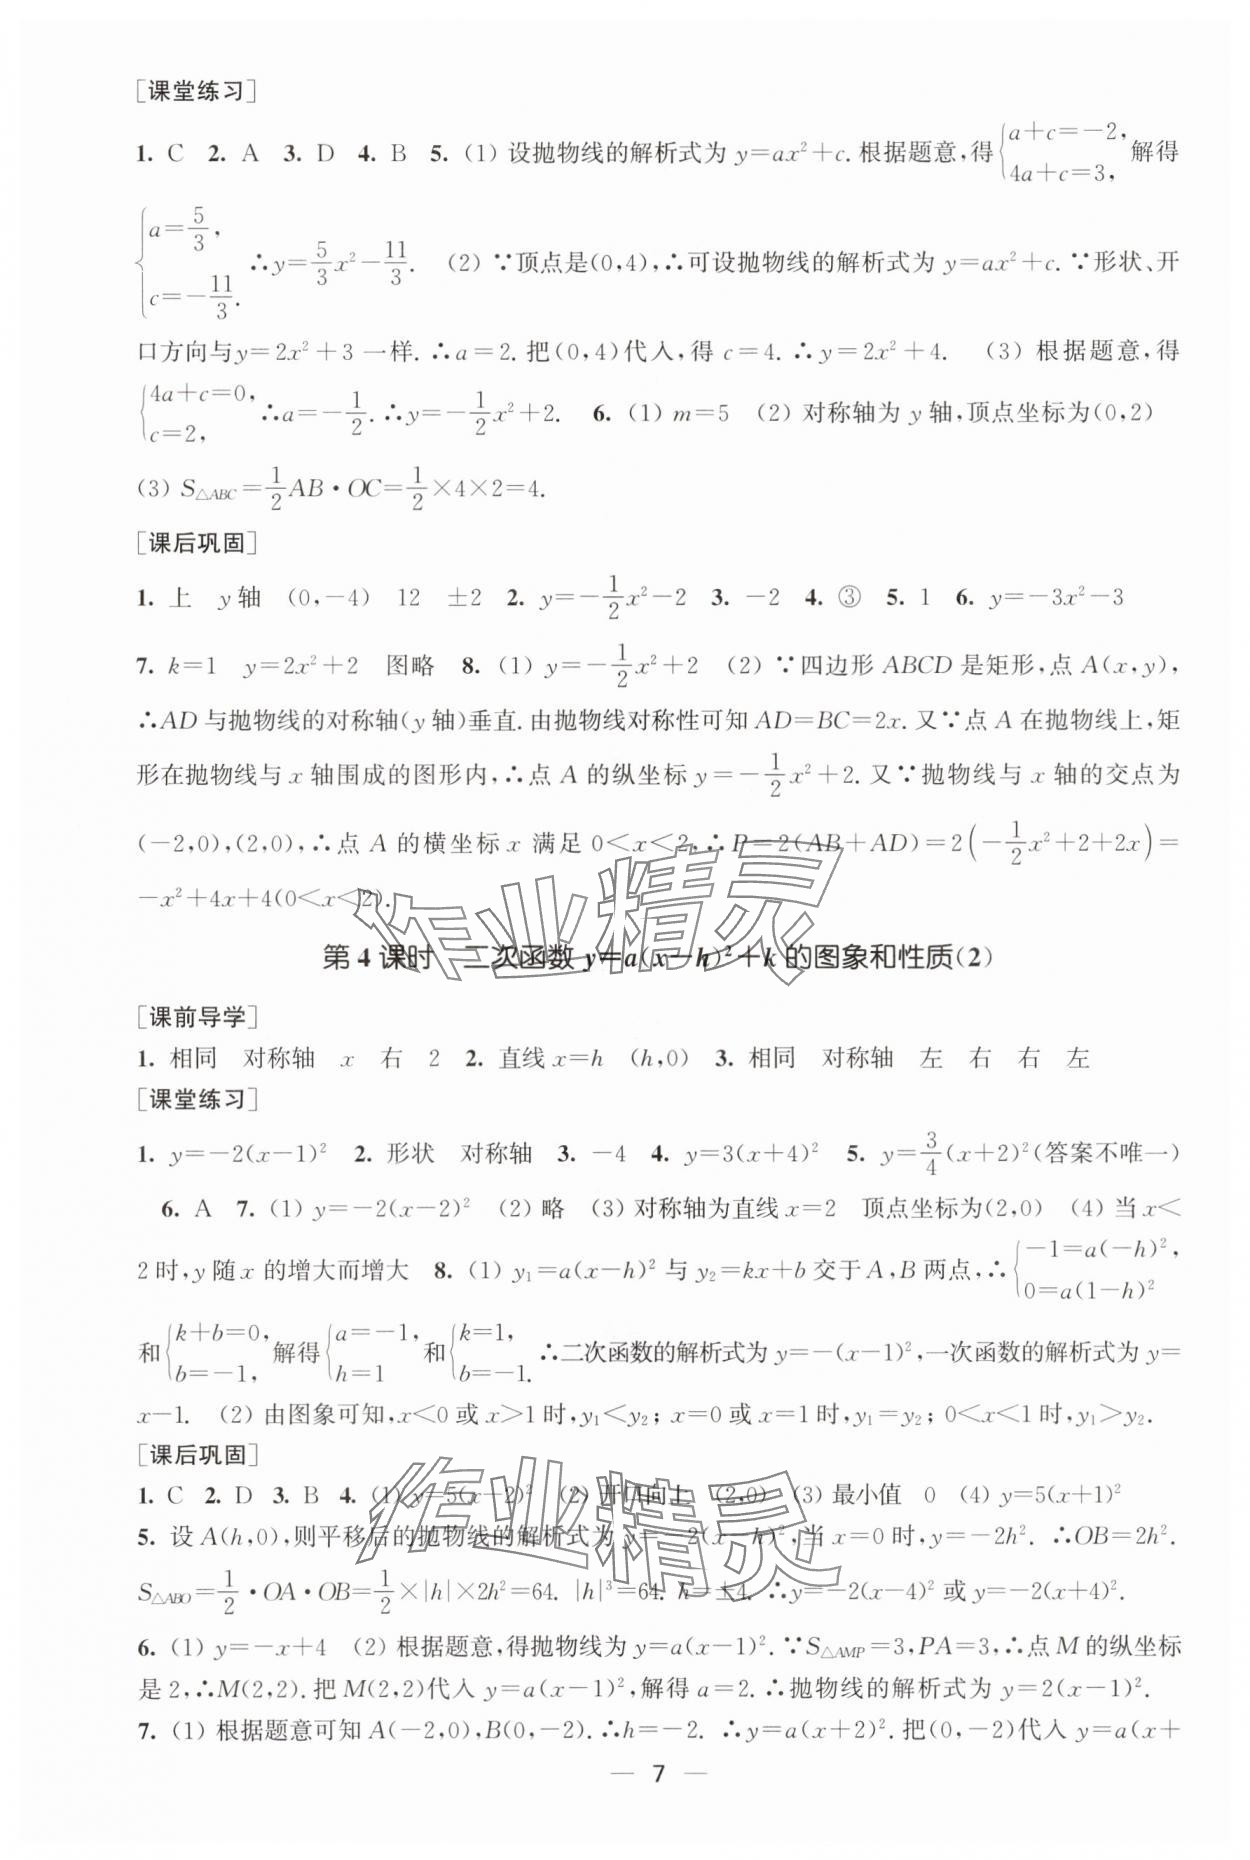 [课堂练习]
1. C 2. A 3. D 4. B 5. (1) 设抛物线的解析式为 y=ax²+c. 根据题意,得{a+c=-2, 4a+c=3, 解得
{a=5/3, c=-11/3. ∴y=5/3x²-11/3. (2) ∵顶点是(0,4),∴可设抛物线的解析式为 y=ax²+c. ∵形状、开
口方向与y=2x²+3 一样. ∴a=2. 把(0,4)代入,得 c=4. ∴y=2x²+4. (3) 根据题意,得
{4a+c=0, c=2, ∴a=-1/2. ∴y=-1/2x²+2. 6. (1) m=5 (2) 对称轴为 y 轴,顶点坐标为(0,2)
(3) S△ABC=1/2AB·OC=1/2×4×2=4.
[课后巩固]
1. 上 y轴 (0,-4) 12 ±2 2. y=-1/2x²-2 3. -2 4. ③ 5. 1 6. y=-3x²-3
7. k=1 y=2x²+2 图略 8. (1) y=-1/2x²+2 (2) ∵四边形 ABCD 是矩形,点 A(x,y),
∴AD 与抛物线的对称轴(y 轴)垂直. 由抛物线对称性可知 AD=BC=2x. 又∵点 A 在抛物线上,矩
形在抛物线与 x 轴围成的图形内,∴点 A 的纵坐标 y=-1/2x²+2. 又∵抛物线与 x 轴的交点为
(-2,0),(2,0),∴点 A 的横坐标 x 满足 0<x<2,∴P=2(AB+AD)=2(-1/2x²+2+2x)=
-x²+4x+4(0<x<2).
第 4 课时 二次函数 y=a(x-h)²+k 的图象和性质(2)
[课前导学]
1. 相同 对称轴 x 右 2 2. 直线 x=h (h,0) 3. 相同 对称轴 左 右 右 左
[课堂练习]
1. y=-2(x-1)² 2. 形状 对称轴 3. -4 4. y=3(x+4)² 5. y=3/4(x+2)²(答案不唯一)
6. A 7. (1) y=-2(x-2)² (2) 略 (3) 对称轴为直线 x=2 顶点坐标为(2,0) (4) 当 x<
2时,y 随 x 的增大而增大 8. (1) y₁=a(x-h)² 与 y₂=kx+b 交于 A,B 两点,∴{-1=a(-h)², 0=a(1-h)²
和{k+b=0, b=-1, 解得{a=-1, h=1 和{k=1, b=-1. ∴二次函数的解析式为 y=-(x-1)²,一次函数的解析式为 y=
x-1. (2) 由图象可知,x<0 或 x>1 时,y₁<y₂; x=0 或 x=1 时,y₁=y₂; 0<x<1 时,y₁>y₂.
[课后巩固]
1. C 2. D 3. B 4. (1) y=5(x-2)² (2) 开口向上 (2,0) (3) 最小值 0 (4) y=5(x+1)²
5. 设 A(h,0),则平移后的抛物线的解析式为 y=-2(x-h)²,当 x=0 时,y=-2h². ∴OB=2h².
S△ABO=1/2·OA·OB=1/2×|h|×2h²=64. |h|³=64. h=±4. ∴y=-2(x-4)² 或 y=-2(x+4)².
6. (1) y=-x+4 (2) 根据题意,得抛物线为 y=a(x-1)². ∵S△AMP=3,PA=3,∴点 M 的纵坐标
是 2,∴M(2,2). 把 M(2,2)代入 y=a(x-1)²,解得 a=2. ∴抛物线的解析式为 y=2(x-1)².
7. (1) 根据题意可知 A(-2,0),B(0,-2). ∴h=-2. ∴y=a(x+2)². 把(0,-2)代入 y=a(x+
— 7 —
作业精灵
作业精灵